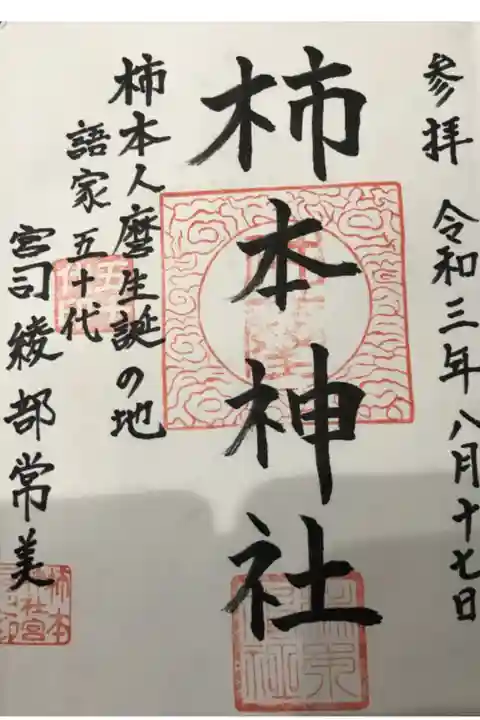 参拝 令和三年八月十七日
柿本神社
柿本人麿生誕の地
語家 五十代
宮司綾部常美